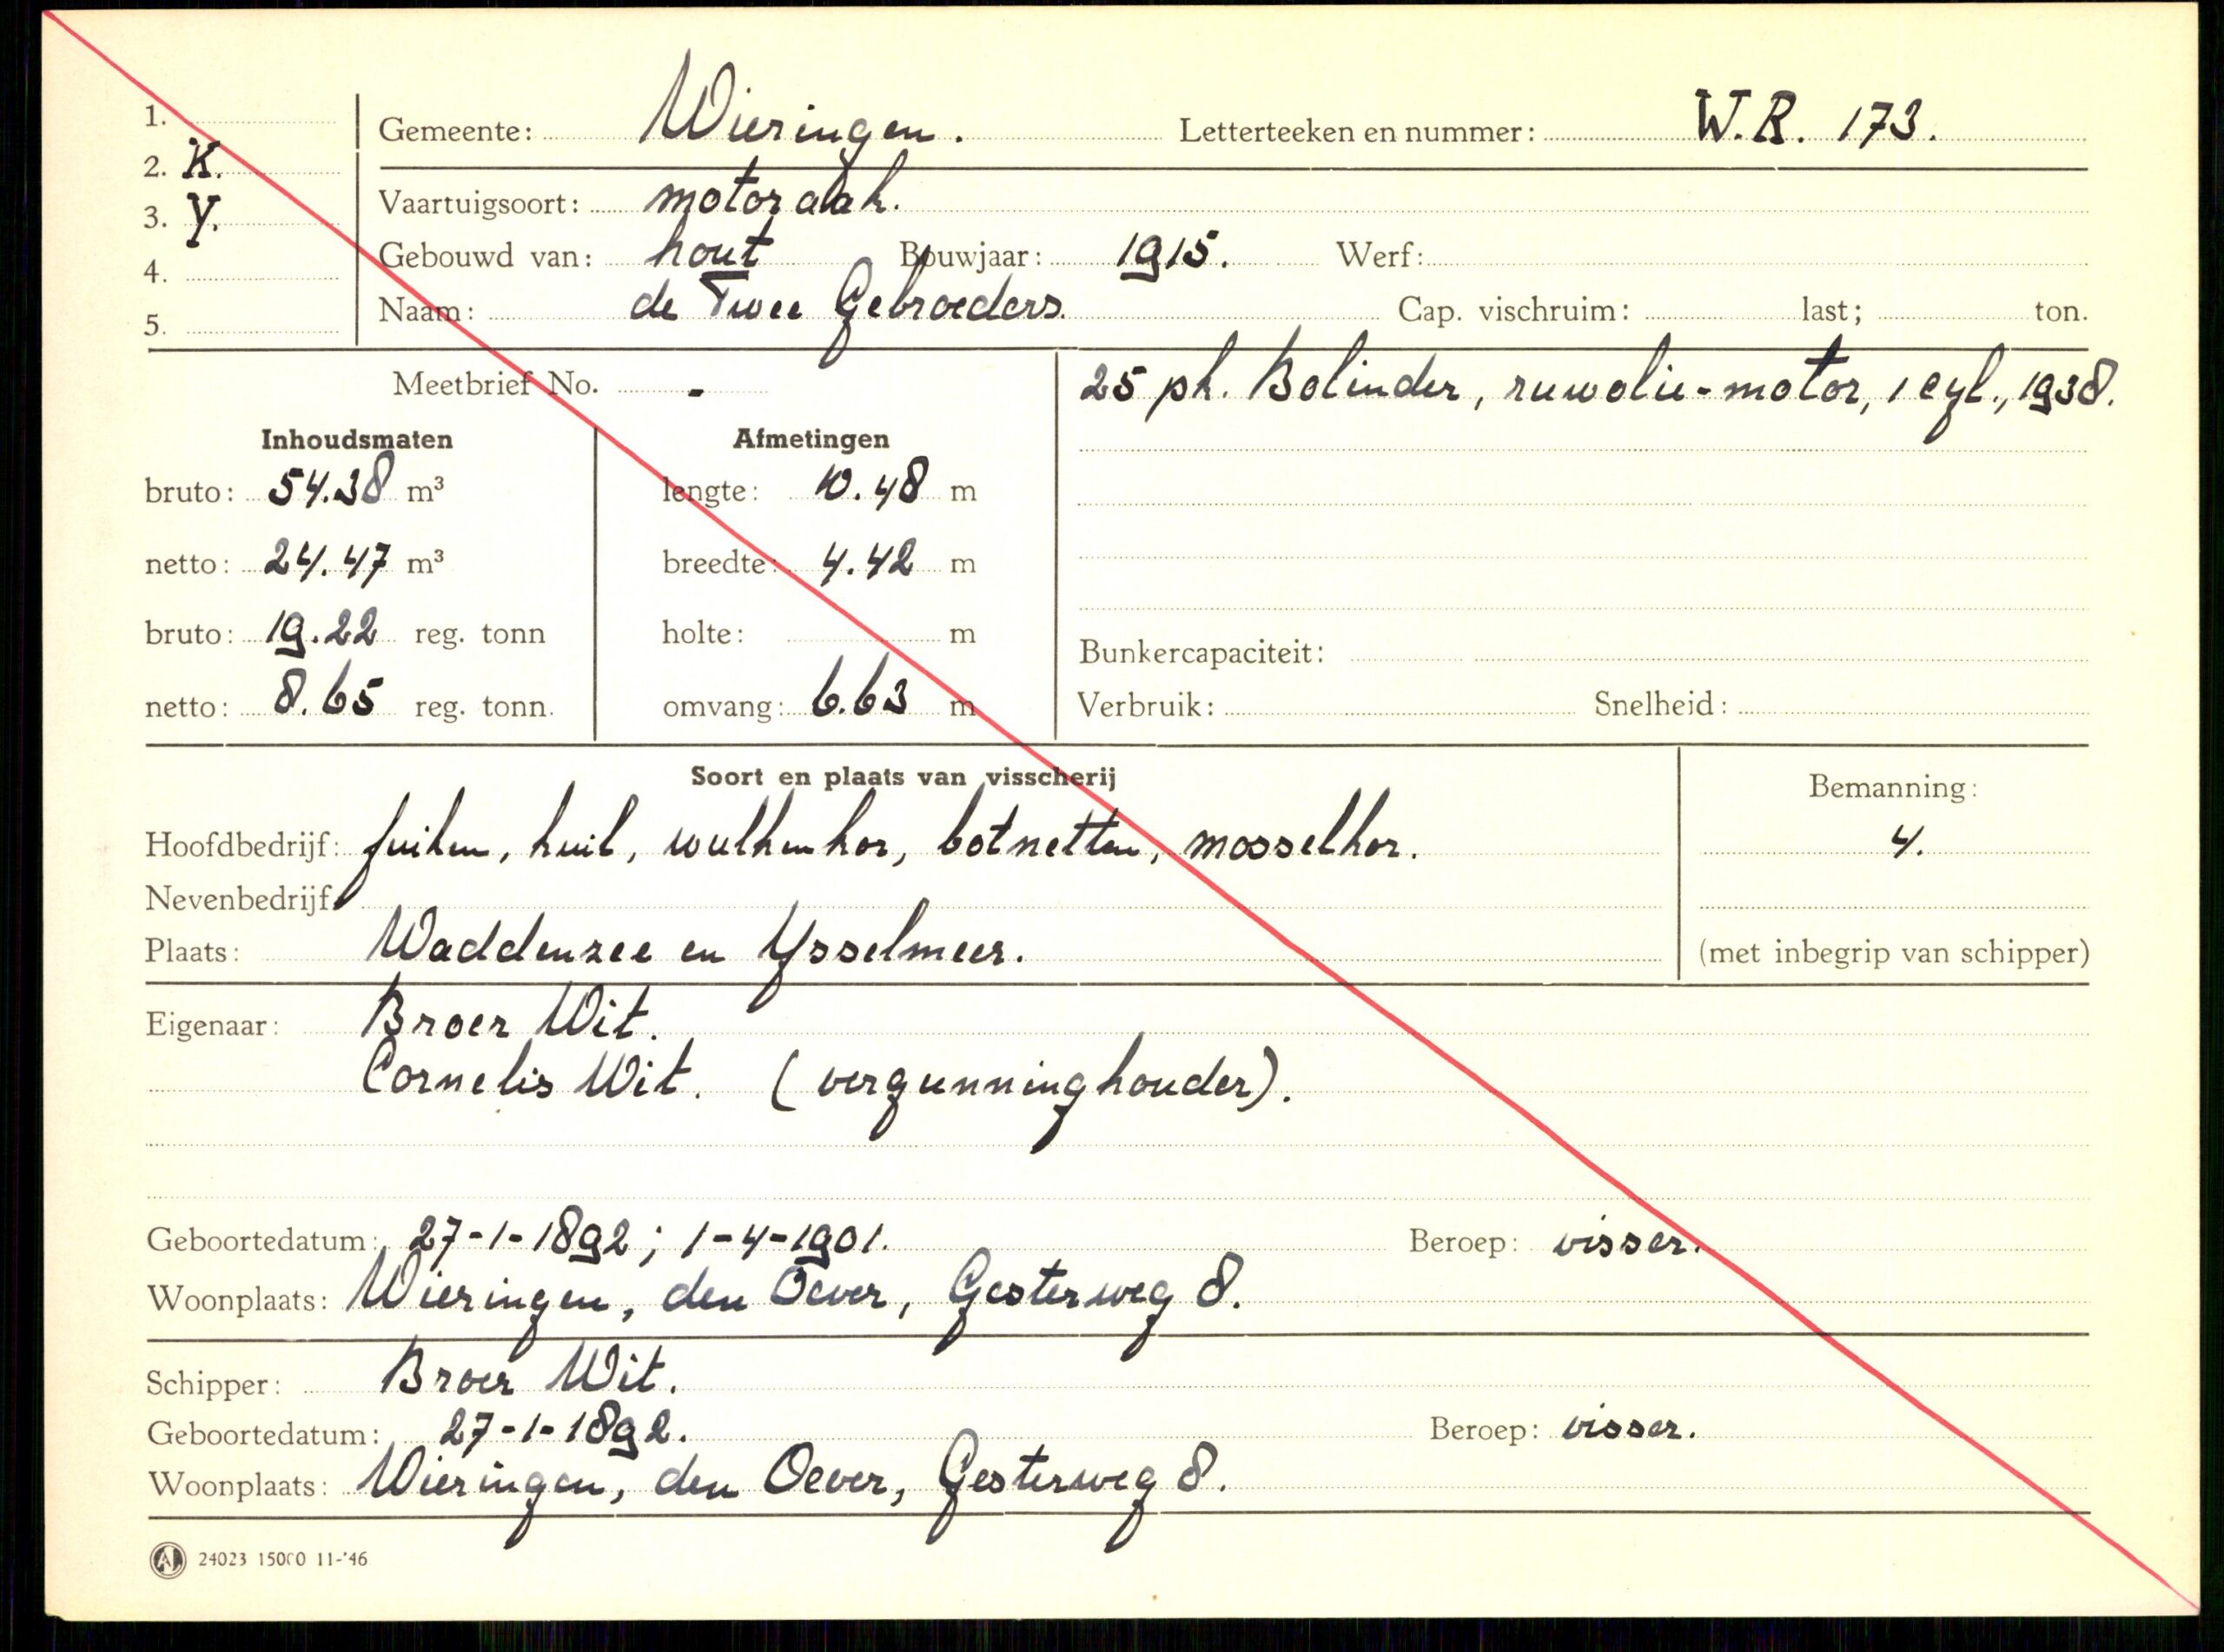 1.
Gemeente: Wieringen. Letterteeken en nummer: W.R. 173.
2. K.
3. Y.
Vaartuigsoort: motoraak.
4.
Gebouwd van: hout Bouwjaar: 1915. Werf:
5.
Naam: de Twee Gebroeders. Cap. vischruim: last; ton.
Meetbrief No. -
25 pk. Bolinder, ruwolie-motor, 1 cyl., 1938.
Inhoudsmaten Afmetingen
bruto: 54.38 m³ lengte: 10.48 m
netto: 24.47 m³ breedte: 4.42 m
bruto: 19.22 reg. tonn holte: m
Bunkercapaciteit:
netto: 8.65 reg. tonn. omvang: 6.63 m
Verbruik: Snelheid:
Soort en plaats van visscherij
Bemanning:
Hoofdbedrijf: fuiken, kuil, wulkenkor, botnetten, mosselkor. 4.
Nevenbedrijf
Plaats: Waddenzee en Ysselmeer. (met inbegrip van schipper)
Eigenaar: Broer Wit.
Cornelis Wit. (vergunninghouder).
Geboortedatum: 27-1-1892; 1-4-1901. Beroep: visser.
Woonplaats: Wieringen, den Oever, Gesterweg 8.
Schipper: Broer Wit.
Geboortedatum: 27-1-1892. Beroep: visser.
Woonplaats: Wieringen, den Oever, Gesterweg 8.
A 24023 15000 11-'46